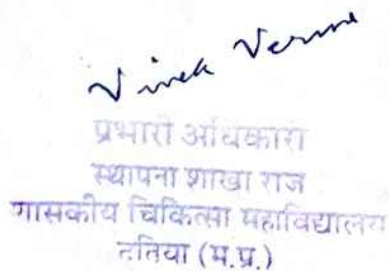 Vivek Verma
प्रभारी अधिकारी
स्थापना शाखा राज
शासकीय चिकित्सा महाविद्यालय
दतिया (म.प्र.)